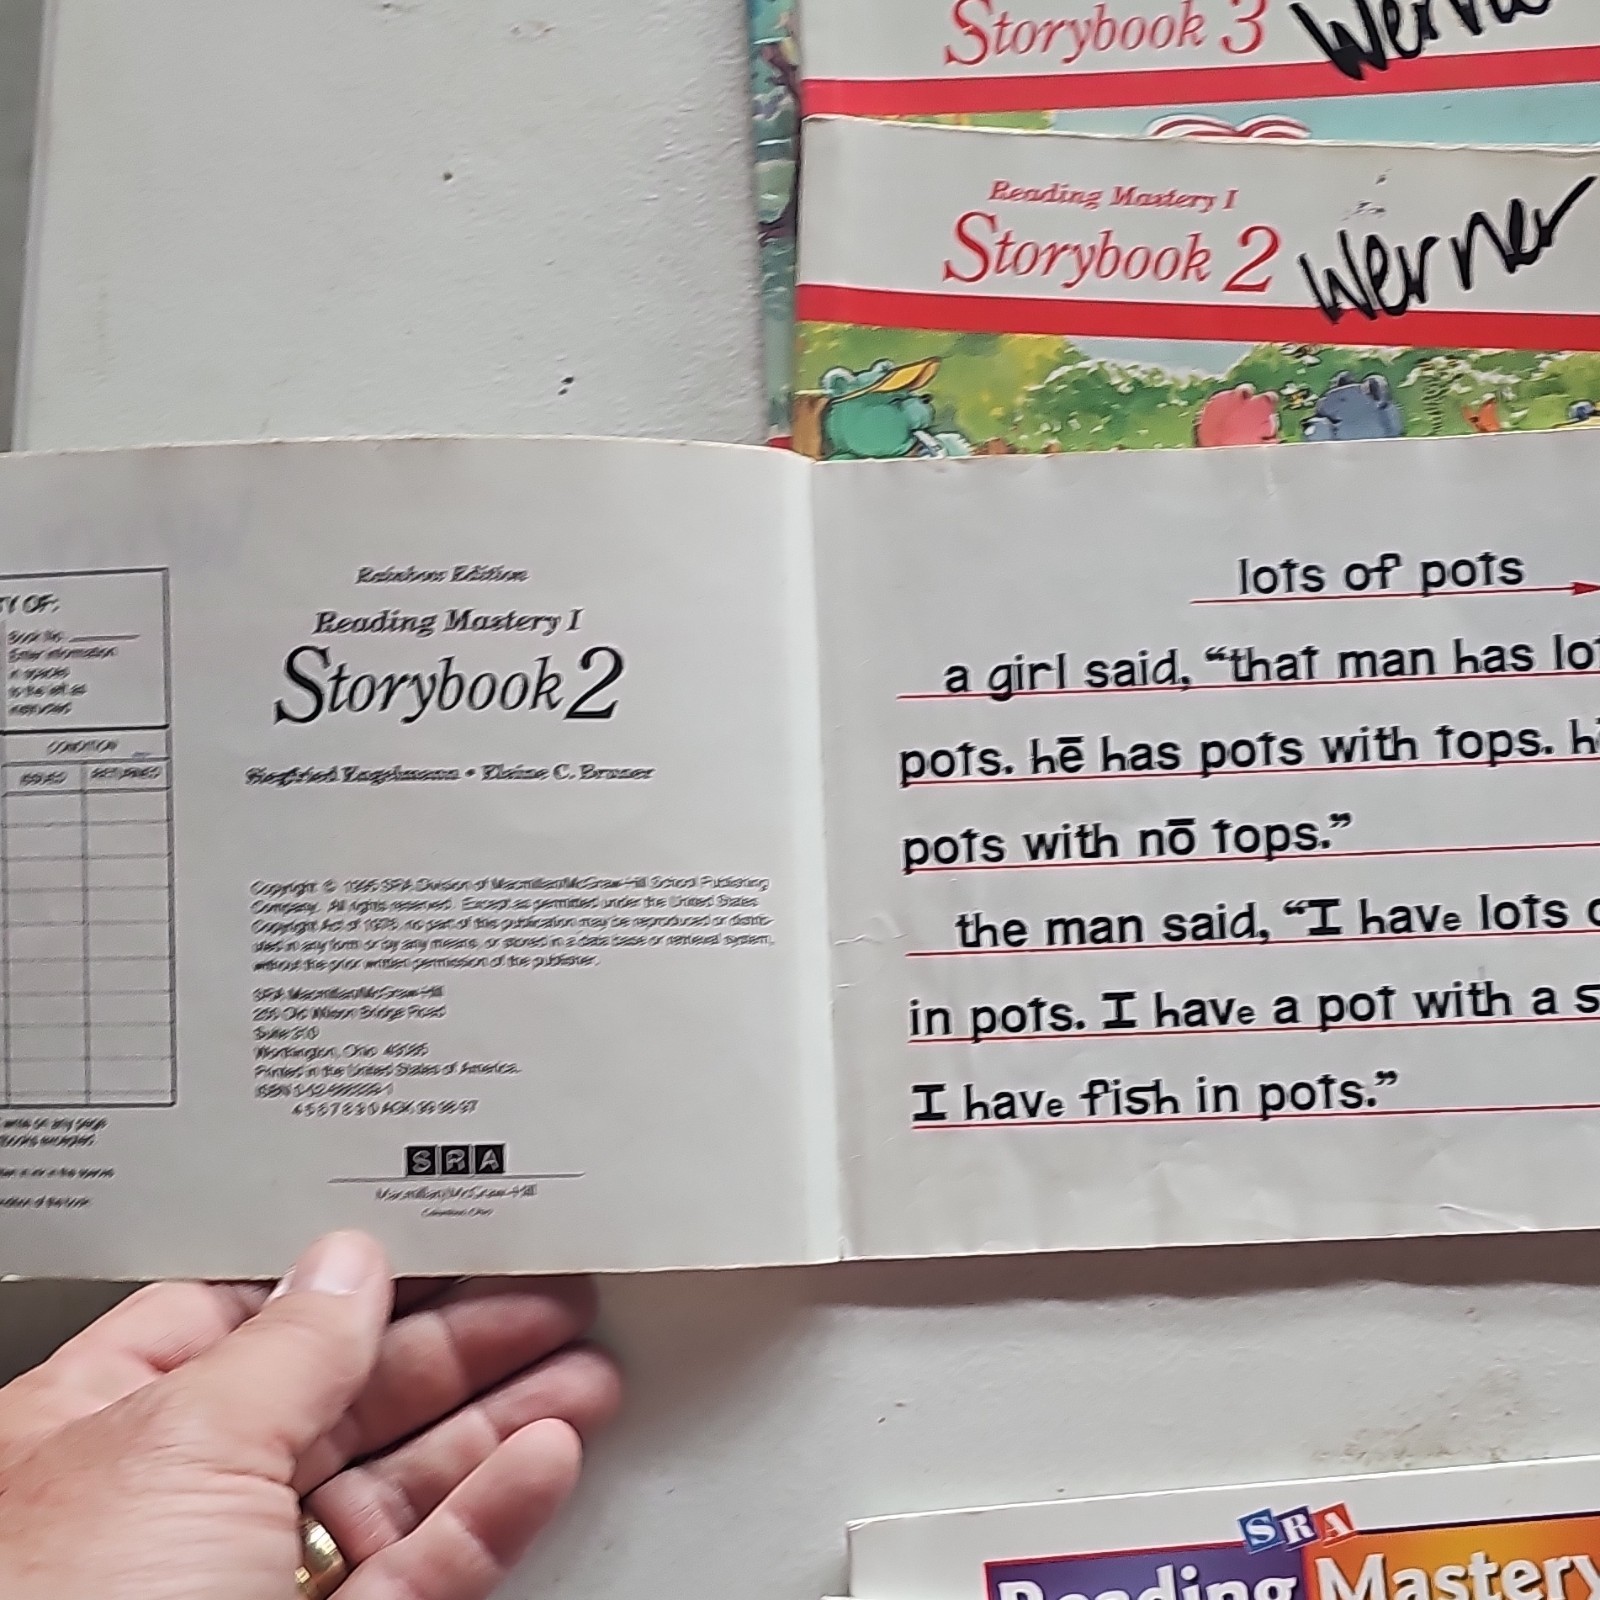 Storybook 3
Reading Mastery I
Storybook 2 Werner
Y OF:
CONDITION
ISSUED RETURNED
Rainbow Edition
Reading Mastery I
Storybook 2
Siegfried Engelmann • Elaine C. Bruner
Copyright © 1995 SRA Division of Macmillan/McGraw-Hill School Publishing
Company. All rights reserved. Except as permitted under the United States
Copyright Act of 1976, no part of this publication may be reproduced or distrib-
uted in any form or by any means, or stored in a data base or retrieval system,
without the prior written permission of the publisher.
SRA Macmillan/McGraw-Hill
250 Old Wilson Bridge Road
Suite 310
Worthington, Ohio 43085
Printed in the United States of America.
SRA
Macmillan/McGraw-Hill
lots of pots
a girl said, “that man has lo
pots. hē has pots with tops. h
pots with nō tops.”
the man said, “I have lots o
in pots. I have a pot with a s
I have fish in pots.”
SRA
Reading Mastery